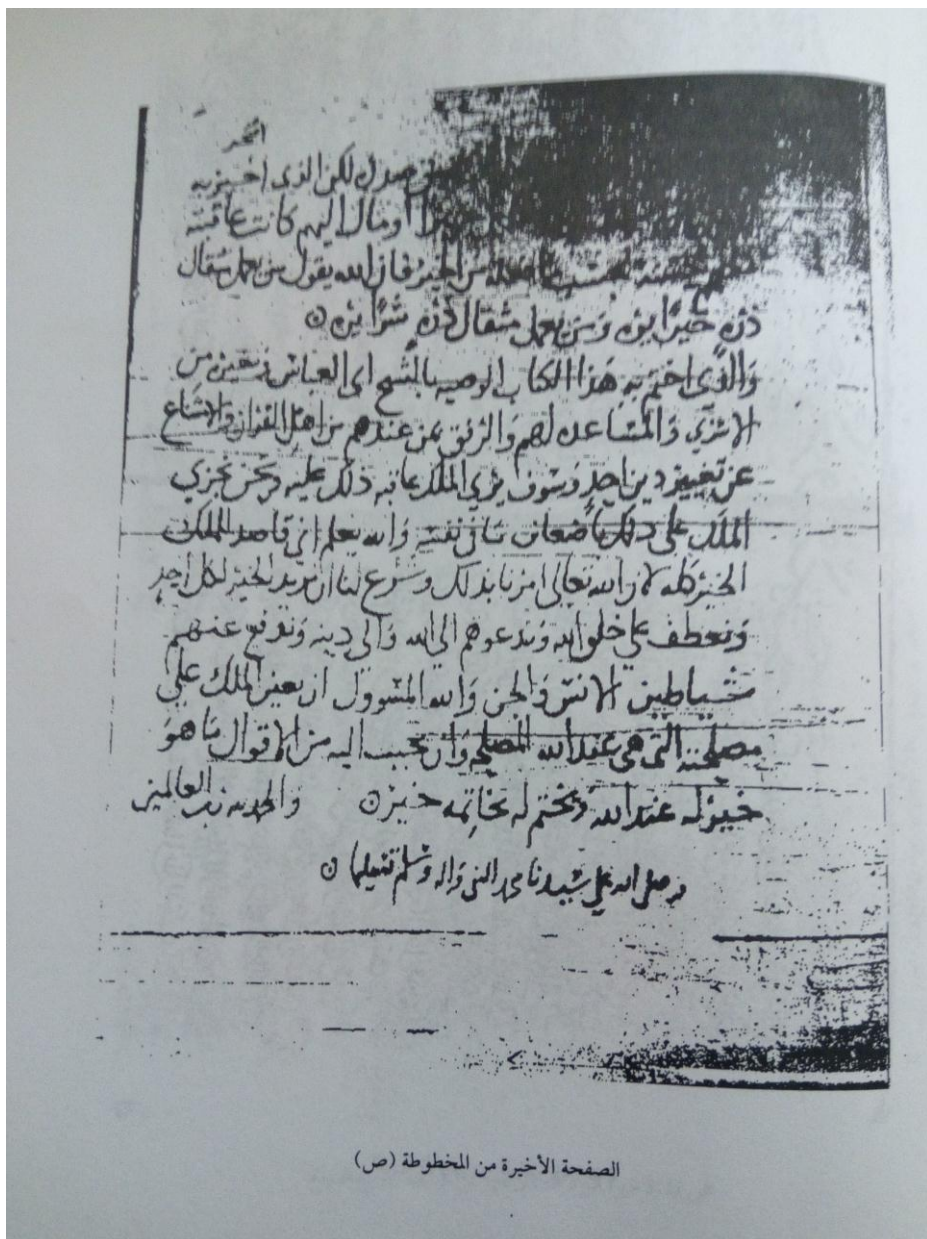 لكن الذى اخبر به
او مال اليهم كانت عاقبته
من الخير فان الله يقول من يعمل مثقال
ذره خيرًا يره ومن يعمل مثقال ذره شرًا يره
والذي اختم به هذا الكتاب الوصيه بالشيخ ابى العباس وبغيره من
الاسري والمساعده لهم والرفق بمن عندهم من اهل القران والامتناع
عن تغيير دين احدٍ وسوف يري الملك عاقبه ذلك عليه ونحن نجزي
الملك على ذلك باضعاف ما فى نفسه والله يعلم انى قاصد للملك
الخير كله لان الله تعالى امرنا بذلك وشرع لنا ان نريد الخير لكل احدٍ
ونعطف على خلق الله وندعوهم الى الله والى دينه وندفع عنهم
شياطين الانس والجن والله المسوول ان يعين الملك على
مصلحته التى هى عند الله المصلحه وان يحبب اليه من الاقوال ما هو
خير له عند الله ويختم له بخاتمه خير والحمد لله رب العالمين
وصلى الله على سيدنا محمد النبى واله وسلم تسليما
الصفحة الأخيرة من المخطوطة (ص)